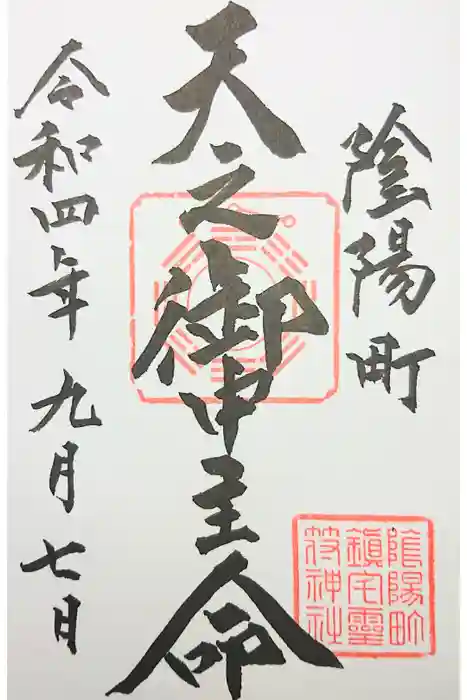 陰陽町
天之御中主命
令和四年九月七日
陰陽町
鎮宅靈
符神社